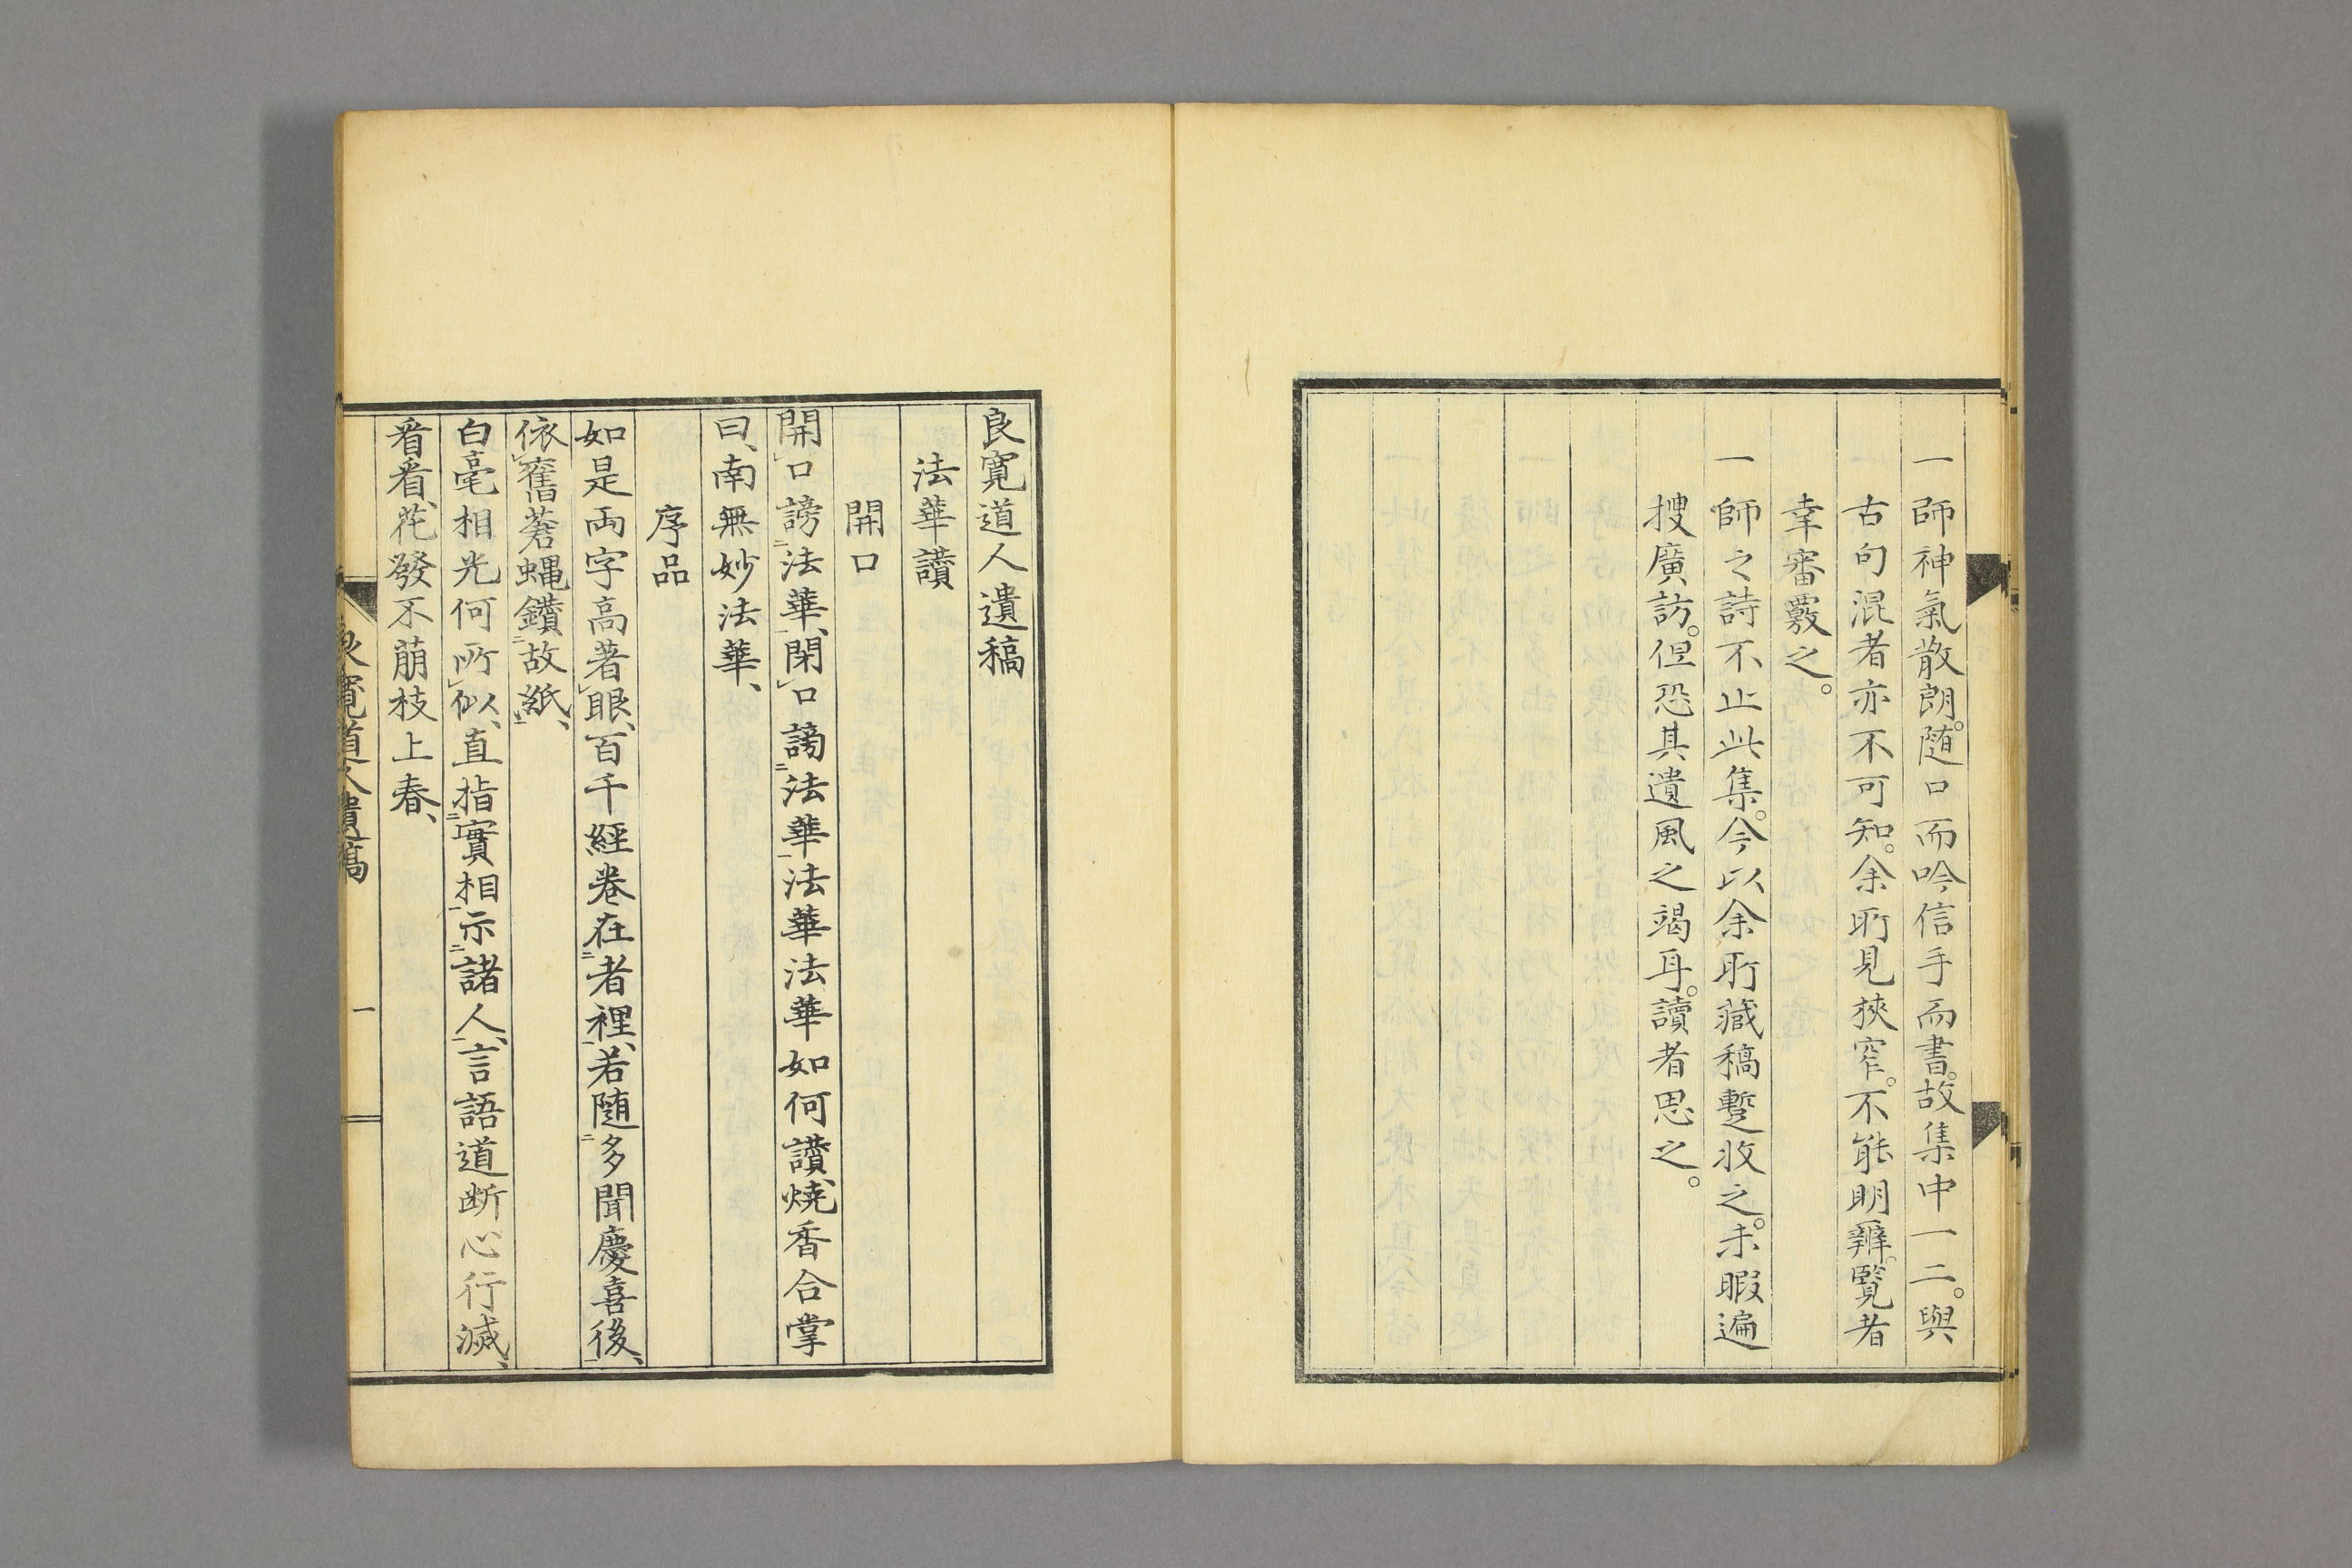 一師神氣散朗。随口而吟信手而書。故集中一二。與
古句混者亦不可知。余所見狹窄。不能明辨。覽者
幸審覈之。
一師之詩不止此集。今以余所藏稿暫收之。未暇遍
搜廣訪。但恐其遺風之竭耳。讀者思之。
良寛道人遺稿
法華讃
開口
開口謗法華、閉口謗法華、法華法華如何讃、燒香合掌
曰、南無妙法華、
序品
如是両字高著眼、百千經卷在者裡、若随多聞慶喜後、
依舊蒼蝿鑽故紙、
白毫相光何所似、直指實相示諸人、言語道断心行滅、
看看、花發不萠枝上春、
良寛道人遺稿
一